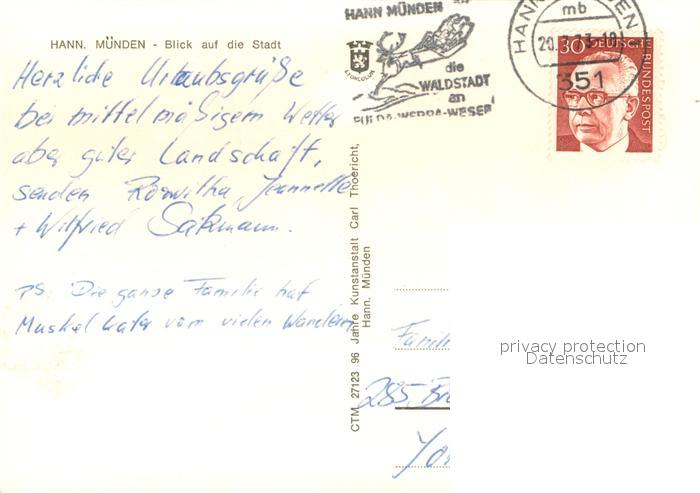 HANN. MÜNDEN - Blick auf die Stadt
Herzliche Urlaubsgrüße
bei mittelmäßigem Wetter
aber guter Landschaft,
senden Roswitha, Jeannette
+ Wilfried Sakmann.
PS: Die ganze Familie hat
Muskelkater vom vielen Wandern
CTM 27123 96 Jahre Kunstanstalt Carl Thoericht,
Hann. Münden
HANN MÜNDEN
die
WALDSTADT
an
FULDA-WERRA-WESER
mb
351
30 DEUTSCHE BUNDESPOST
Famili
285 Br
privacy protection
Datenschutz